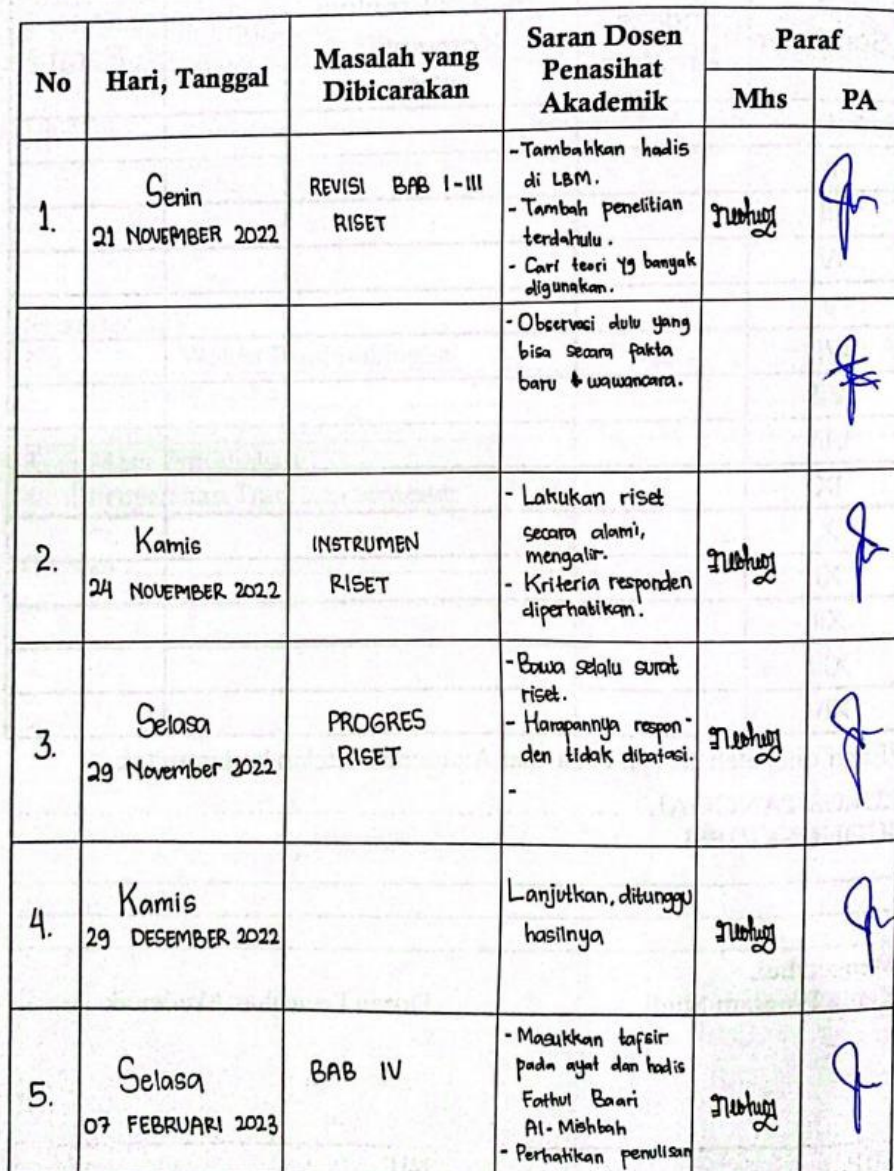 No
Hari, Tanggal
Masalah yang
Dibicarakan
Saran Dosen
Penasihat
Akademik
Paraf
Mhs
PA
1.
Senin
21 NOVEMBER 2022
REVISI BAB I-III
RISET
- Tambahkan hadis
di LBM.
- Tambah penelitian
terdahulu.
- Cari teori yg banyak
digunakan.
- Observasi dulu yang
bisa secara fakta
baru & wawancara.
2.
Kamis
24 NOVEMBER 2022
INSTRUMEN
RISET
- Lakukan riset
secara alami,
mengalir.
- Kriteria responden
diperhatikan.
3.
Selasa
29 November 2022
PROGRES
RISET
- Bawa selalu surat
riset.
- Harapannya respon-
den tidak dibatasi.
-
4.
Kamis
29 DESEMBER 2022
Lanjutkan, ditunggu
hasilnya
5.
Selasa
07 FEBRUARI 2023
BAB IV
- Masukkan tafsir
pada ayat dan hadis
Fathul Baari
Al-Mishbah
- Perhatikan penulisan